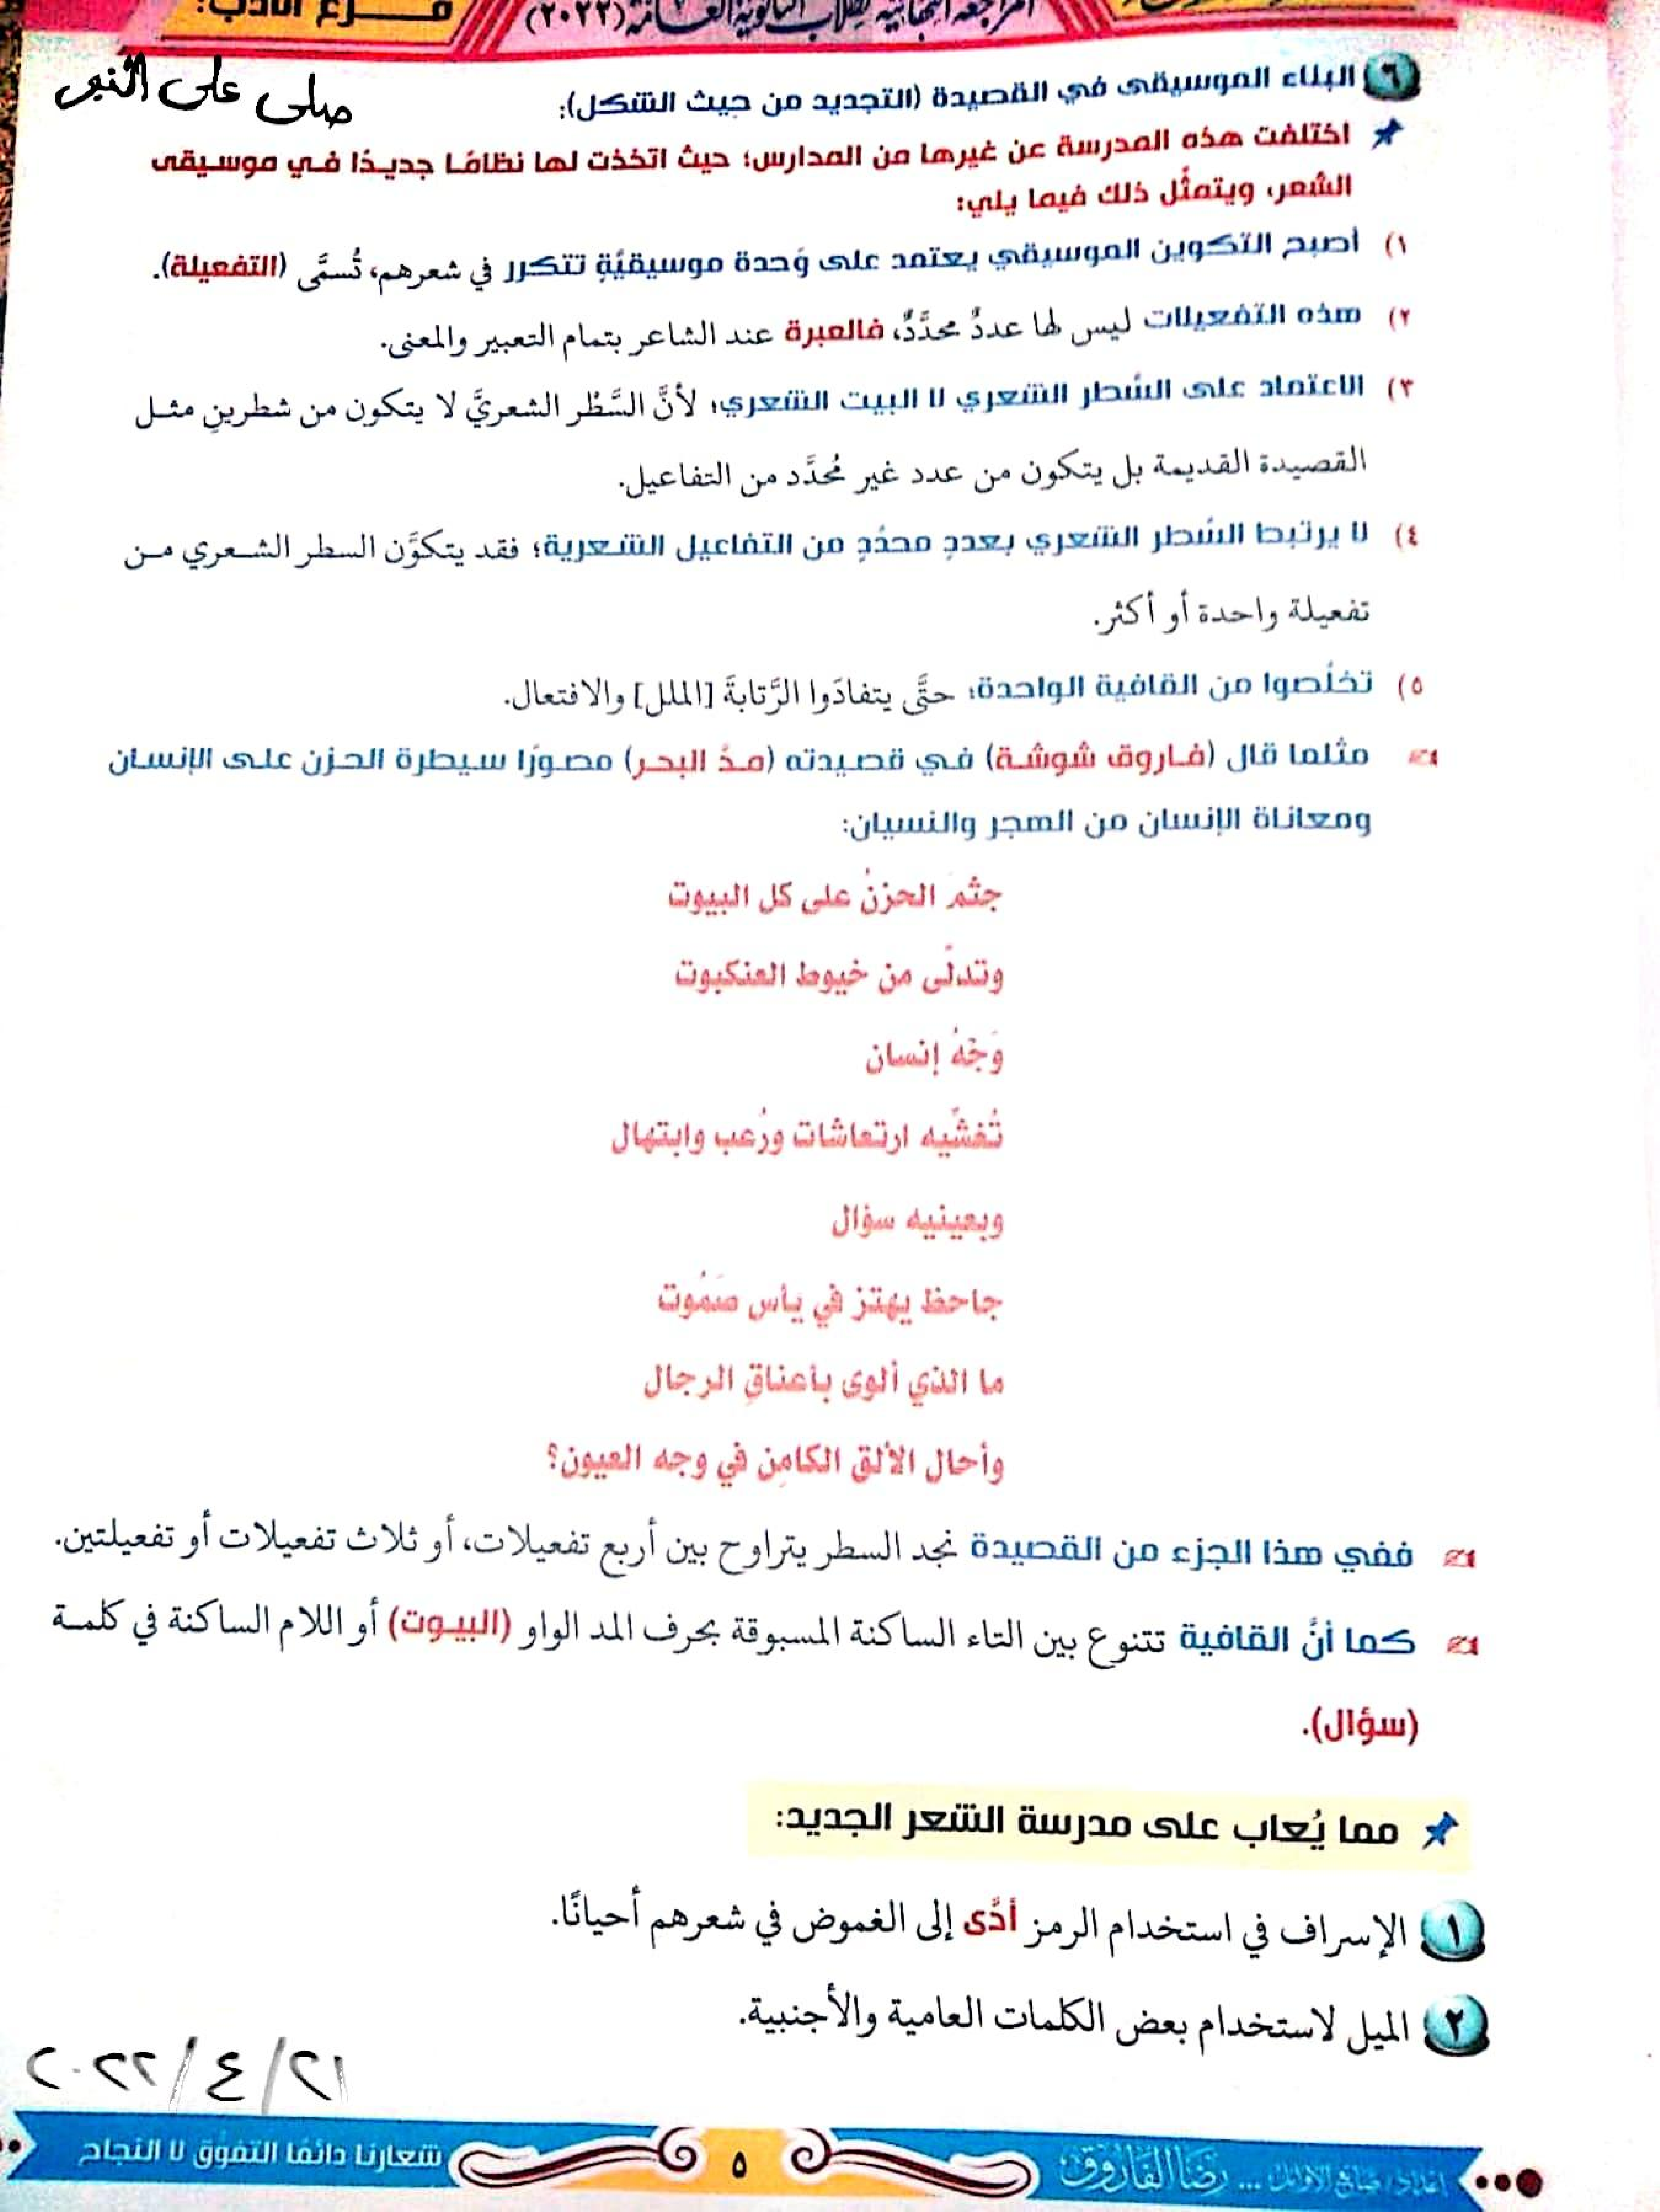 فرع الأدب:
المراجعة النهائية لطلاب الثانوية العامة (٢٠٢٢)
صلى على النبى
٦ البناء الموسيقى في القصيدة (التجديد من حيث الشكل):
اختلفت هذه المدرسة عن غيرها من المدارس؛ حيث اتخذت لها نظامًا جديدًا في موسيقى
الشعر، ويتمثَّل ذلك فيما يلي:
١) أصبح التكوين الموسيقي يعتمد على وَحدة موسيقيَّةٍ تتكرر في شعرهم، تُسمَّى (التفعيلة).
٢) هذه التفعيلات ليس لها عددٌ محدَّدٌ، فالعبرة عند الشاعر بتمام التعبير والمعنى.
٣) الاعتماد على السَّطر الشعري لا البيت الشعري؛ لأنَّ السَّطْر الشعريَّ لا يتكون من شطرينِ مثل
القصيدة القديمة بل يتكون من عدد غير مُحدَّد من التفاعيل.
٤) لا يرتبط السَّطر الشعري بعددٍ محدَّدٍ من التفاعيل الشعرية؛ فقد يتكوَّن السطر الشعري من
تفعيلة واحدة أو أكثر.
٥) تخلَّصوا من القافية الواحدة؛ حتَّى يتفادَوا الرَّتابةَ [الملل] والافتعال.
مثلما قال (فاروق شوشة) في قصيدته (مدُّ البحر) مصورًا سيطرة الحزن على الإنسان
ومعاناة الإنسان من الهجر والنسيان:
جثَم الحزنُ على كل البيوت
وتدلَّى من خيوط العنكبوت
وَجْهُ إنسان
تُغشّيه ارتعاشات ورُعب وابتهال
وبعينيه سؤال
جاحظ يهتز في يأس صَمُوت
ما الذي ألوى بأعناقِ الرجال
وأحال الألق الكامِن في وجه العيون؟
ففي هذا الجزء من القصيدة نجد السطر يتراوح بين أربع تفعيلات، أو ثلاث تفعيلات أو تفعيلتين.
كما أنَّ القافية تتنوع بين التاء الساكنة المسبوقة بحرف المد الواو (البيوت) أو اللام الساكنة في كلمة
(سؤال).
مما يُعاب على مدرسة الشعر الجديد:
١ الإسراف في استخدام الرمز أدَّى إلى الغموض في شعرهم أحيانًا.
٢ الميل لاستخدام بعض الكلمات العامية والأجنبية.
٢٠٢٢/٤/٢١
إعداد/ صانع الأوائل ... رضا الفاروق
٥
شعارنا دائمًا التفوُّق لا النجاح